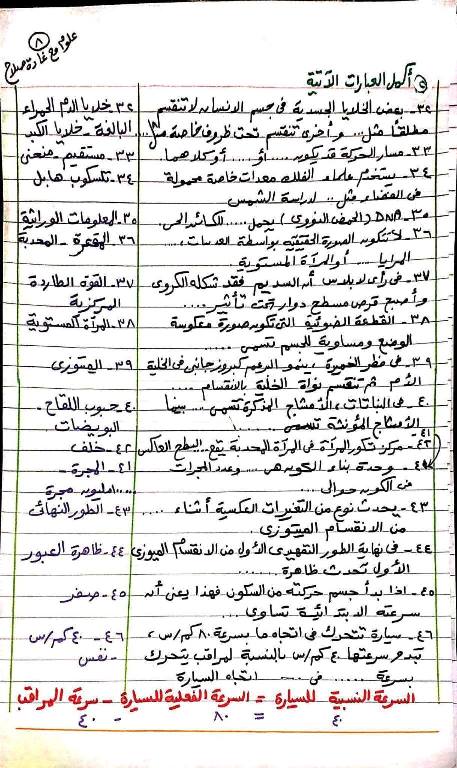 علوم مع غادة صلاح
٨
أكمل العبارات الآتية
٣٢- بعض الخلايا الجسدية فى جسم الانسان لا تنقسم
٣٢- خلايا الدم الحمراء
مطلقاً مثل... وأخرى تنقسم تحت ظروف خاصة مثل...
البالغة - خلايا الكبد
٣٣- مسار الحركة قد يكون.... أو.... أو كلاهما.
٣٣- مستقيم - منحنى
٣٤- يستخدم علماء الفلك معدات خاصة محمولة
٣٤- تلسكوب هابل
فى الفضاء مثل.. لدراسة الشمس
٣٥- DNA (الحمض النووى) يحمل.... للكائن الحى.
٣٥- المعلومات الوراثية
٣٦- لا تتكون الصورة الحقيقية بواسطة العدسات....
٣٦- المقعرة - المحدبة
المرايا.... أو المرآة المستوية
٣٧- فى رأى لابلاس أن السديم فقد شكله الكروى
٣٧- القوة الطاردة
وأصبع قرص مسطح دوار تحت تأثير....
المركزية
٣٨- القطعة الضوئية التى تكون صورة معكوسة
٣٨- المرآة المستوية
الوضع ومساوية للجسم تسمى.....
٣٩- فى فطر الخميرة، ينمو البرعم كبروز جانبى فى الخلية
٣٩- الميتوزى
الأم ثم تنقسم نواة الخلية بالانقسام....
٤٠- فى النباتات، الأمشاج المذكرة تسمى... بينما
٤٠- حبوب اللقاح -
الأمشاج المؤنثة تسمى....
البويضات
٤٢- مركز تكور المرآة فى المرآة المحدبة يقع... السطح العاكس
٤٢- خلف
٤١- وحدة بناء الكون هى.... وعدد المجرات
٤١- المجرة -
فى الكون حوالى...
مليون مجرة
٤٣- يحدث نوع من التغيرات العكسية أثناء....
٤٣- الطور النهائى
من الانقسام الميتوزى.
٤٤- فى نهاية الطور التمهيدى الأول من الانقسام الميوزى
٤٤- ظاهرة العبور
الأول تحدث ظاهرة.....
٤٥- اذا بدأ جسم حركته من السكون فهذا يعنى أن
٤٥- صفر
سرعته الابتدائية تساوى...
٤٦- سيارة تتحرك فى اتجاه ما بسرعة ٨٠ كم/س،
٤٦- ٤٠ كم/س
تبدو سرعتها ٤٠ كم/س بالنسبة لمراقب يتحرك
- نفس
بسرعة.... فى.... اتجاه السيارة
السرعة النسبية للسيارة = السرعة الفعلية للسيارة - سرعة المراقب
٤٠ = ٨٠ - ٤٠